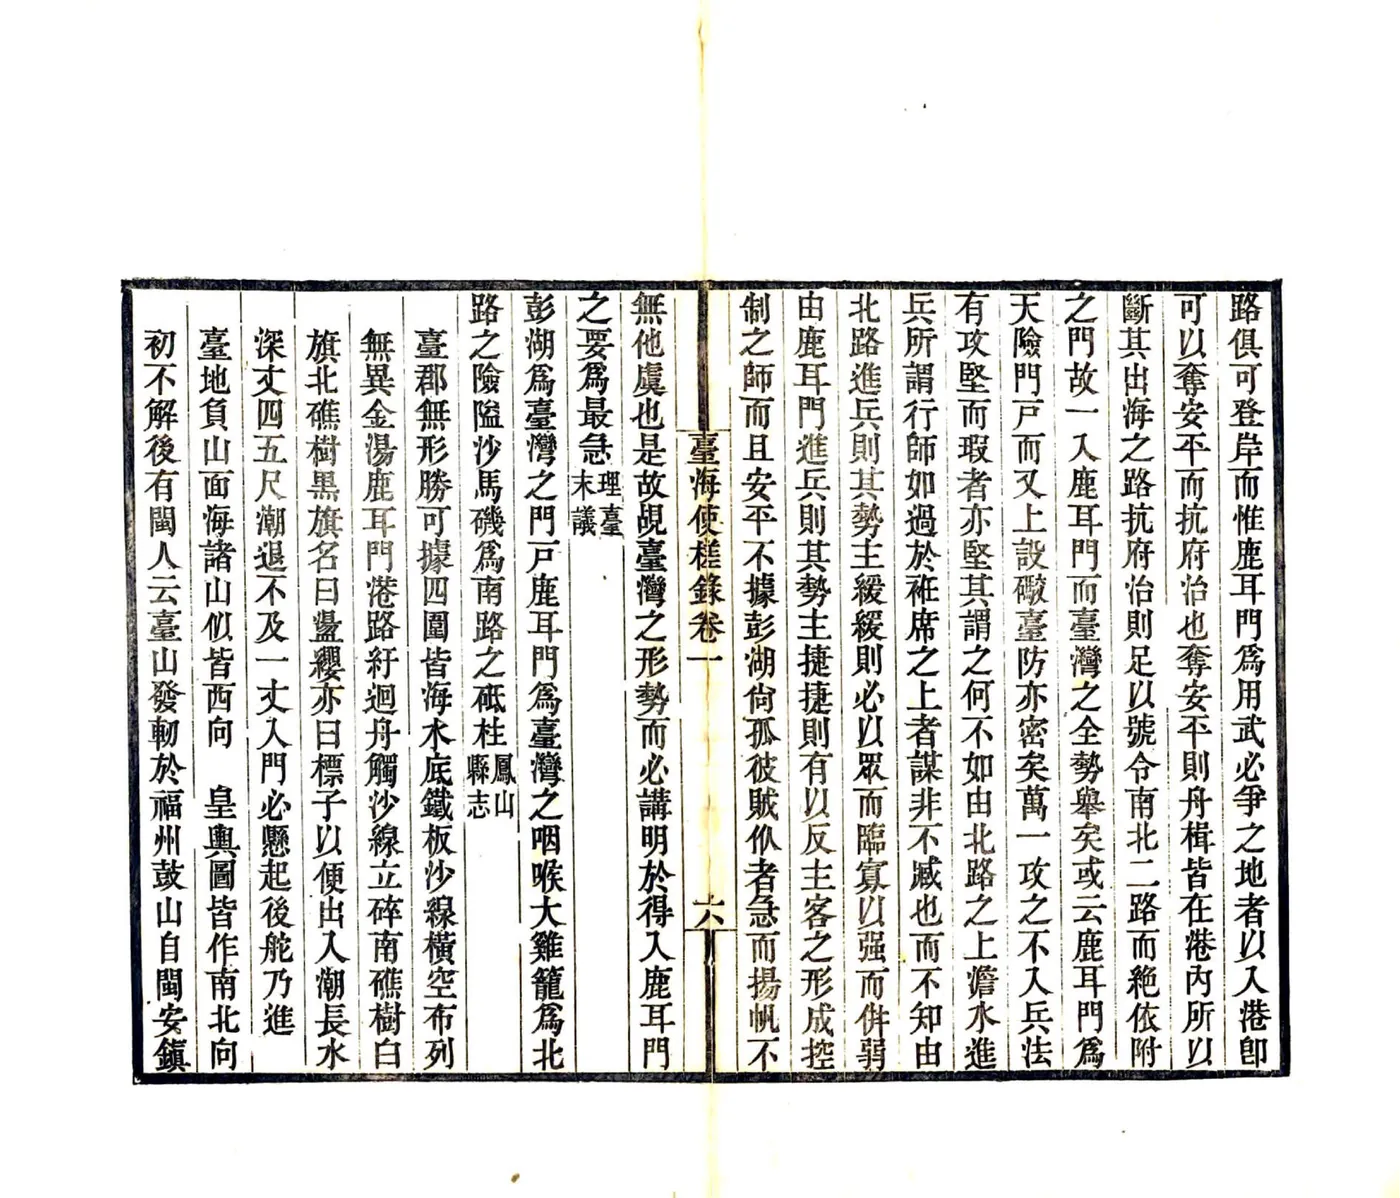 路俱可登岸而惟鹿耳門爲用武必爭之地者以入港卽
可以奪安平而抗府治也奪安平則舟楫皆在港內所以
斷其出海之路抗府治則足以號令南北二路而絕依附
之門故一入鹿耳門而臺灣之全勢舉矣或云鹿耳門爲
天險門戸而又上設礮臺防亦密矣萬一攻之不入兵法
有攻堅而瑕者亦堅其謂之何不如由北路之上澹水進
兵所謂行師如過於袵席之上者謀非不臧也而不知由
北路進兵則其勢主緩緩則必以眾而臨寡以强而倂弱
由鹿耳門進兵則其勢主捷捷則有以反主客之形成控
制之師而且安平不據彭湖尙孤彼賊仈者急而揚帆不
臺海使槎錄卷一
六
無他虞也是故覘臺灣之形勢而必講明於得入鹿耳門
之要爲最急理臺
末議
彭湖爲臺灣之門戸鹿耳門爲臺灣之咽喉大雞籠爲北
路之險隘沙馬磯爲南路之砥柱鳳山
縣志
臺郡無形勝可據四圍皆海水底鐵板沙線橫空布列
無異金湯鹿耳門港路紆迴舟觸沙線立碎南礁樹白
旗北礁樹黑旗名曰盪纓亦曰標子以便出入潮長水
深丈四五尺潮退不及一丈入門必懸起後舵乃進
臺地負山面海諸山似皆西向　皇輿圖皆作南北向
初不解後有閩人云臺山發軔於福州鼓山自閩安鎮